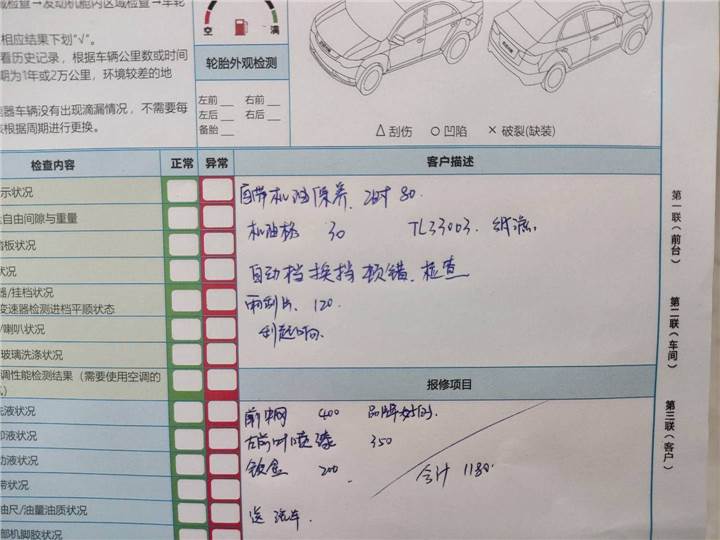 域检查→发动机舱内区域检查→车轮
空 满
相应结果下划"√"。
看历史记录，根据车辆公里数或时间
期为1年或2万公里，环境较差的地
轮胎外观检测
速器车辆没有出现滴漏情况，不需要每
该根据周期进行更换。
左前 右前
左后 右后
备胎
△ 刮伤 ○ 凹陷 × 破裂(缺装)
检查内容 正常 异常 客户描述
示状况
自带机油保养. 工时 80.
自由间隙与重量
机油格 30 TL33003.
踏板状况
状况
自动档换挡顿错. 检查
器/挂档状况
雨刮片. 120.
变速器检测进档平顺状态
/喇叭状况
玻璃洗涤状况
调性能检测结果（需要使用空调的
报修项目
洗液状况
前中网 400
却液状况
喷漆 350
动液状况
钣金 200 合计 1180.
带状况
油尺/油量油质状况
送 洗车.
部机脚胶状况
第一联（前台）
第二联（车间）
第三联（客户）